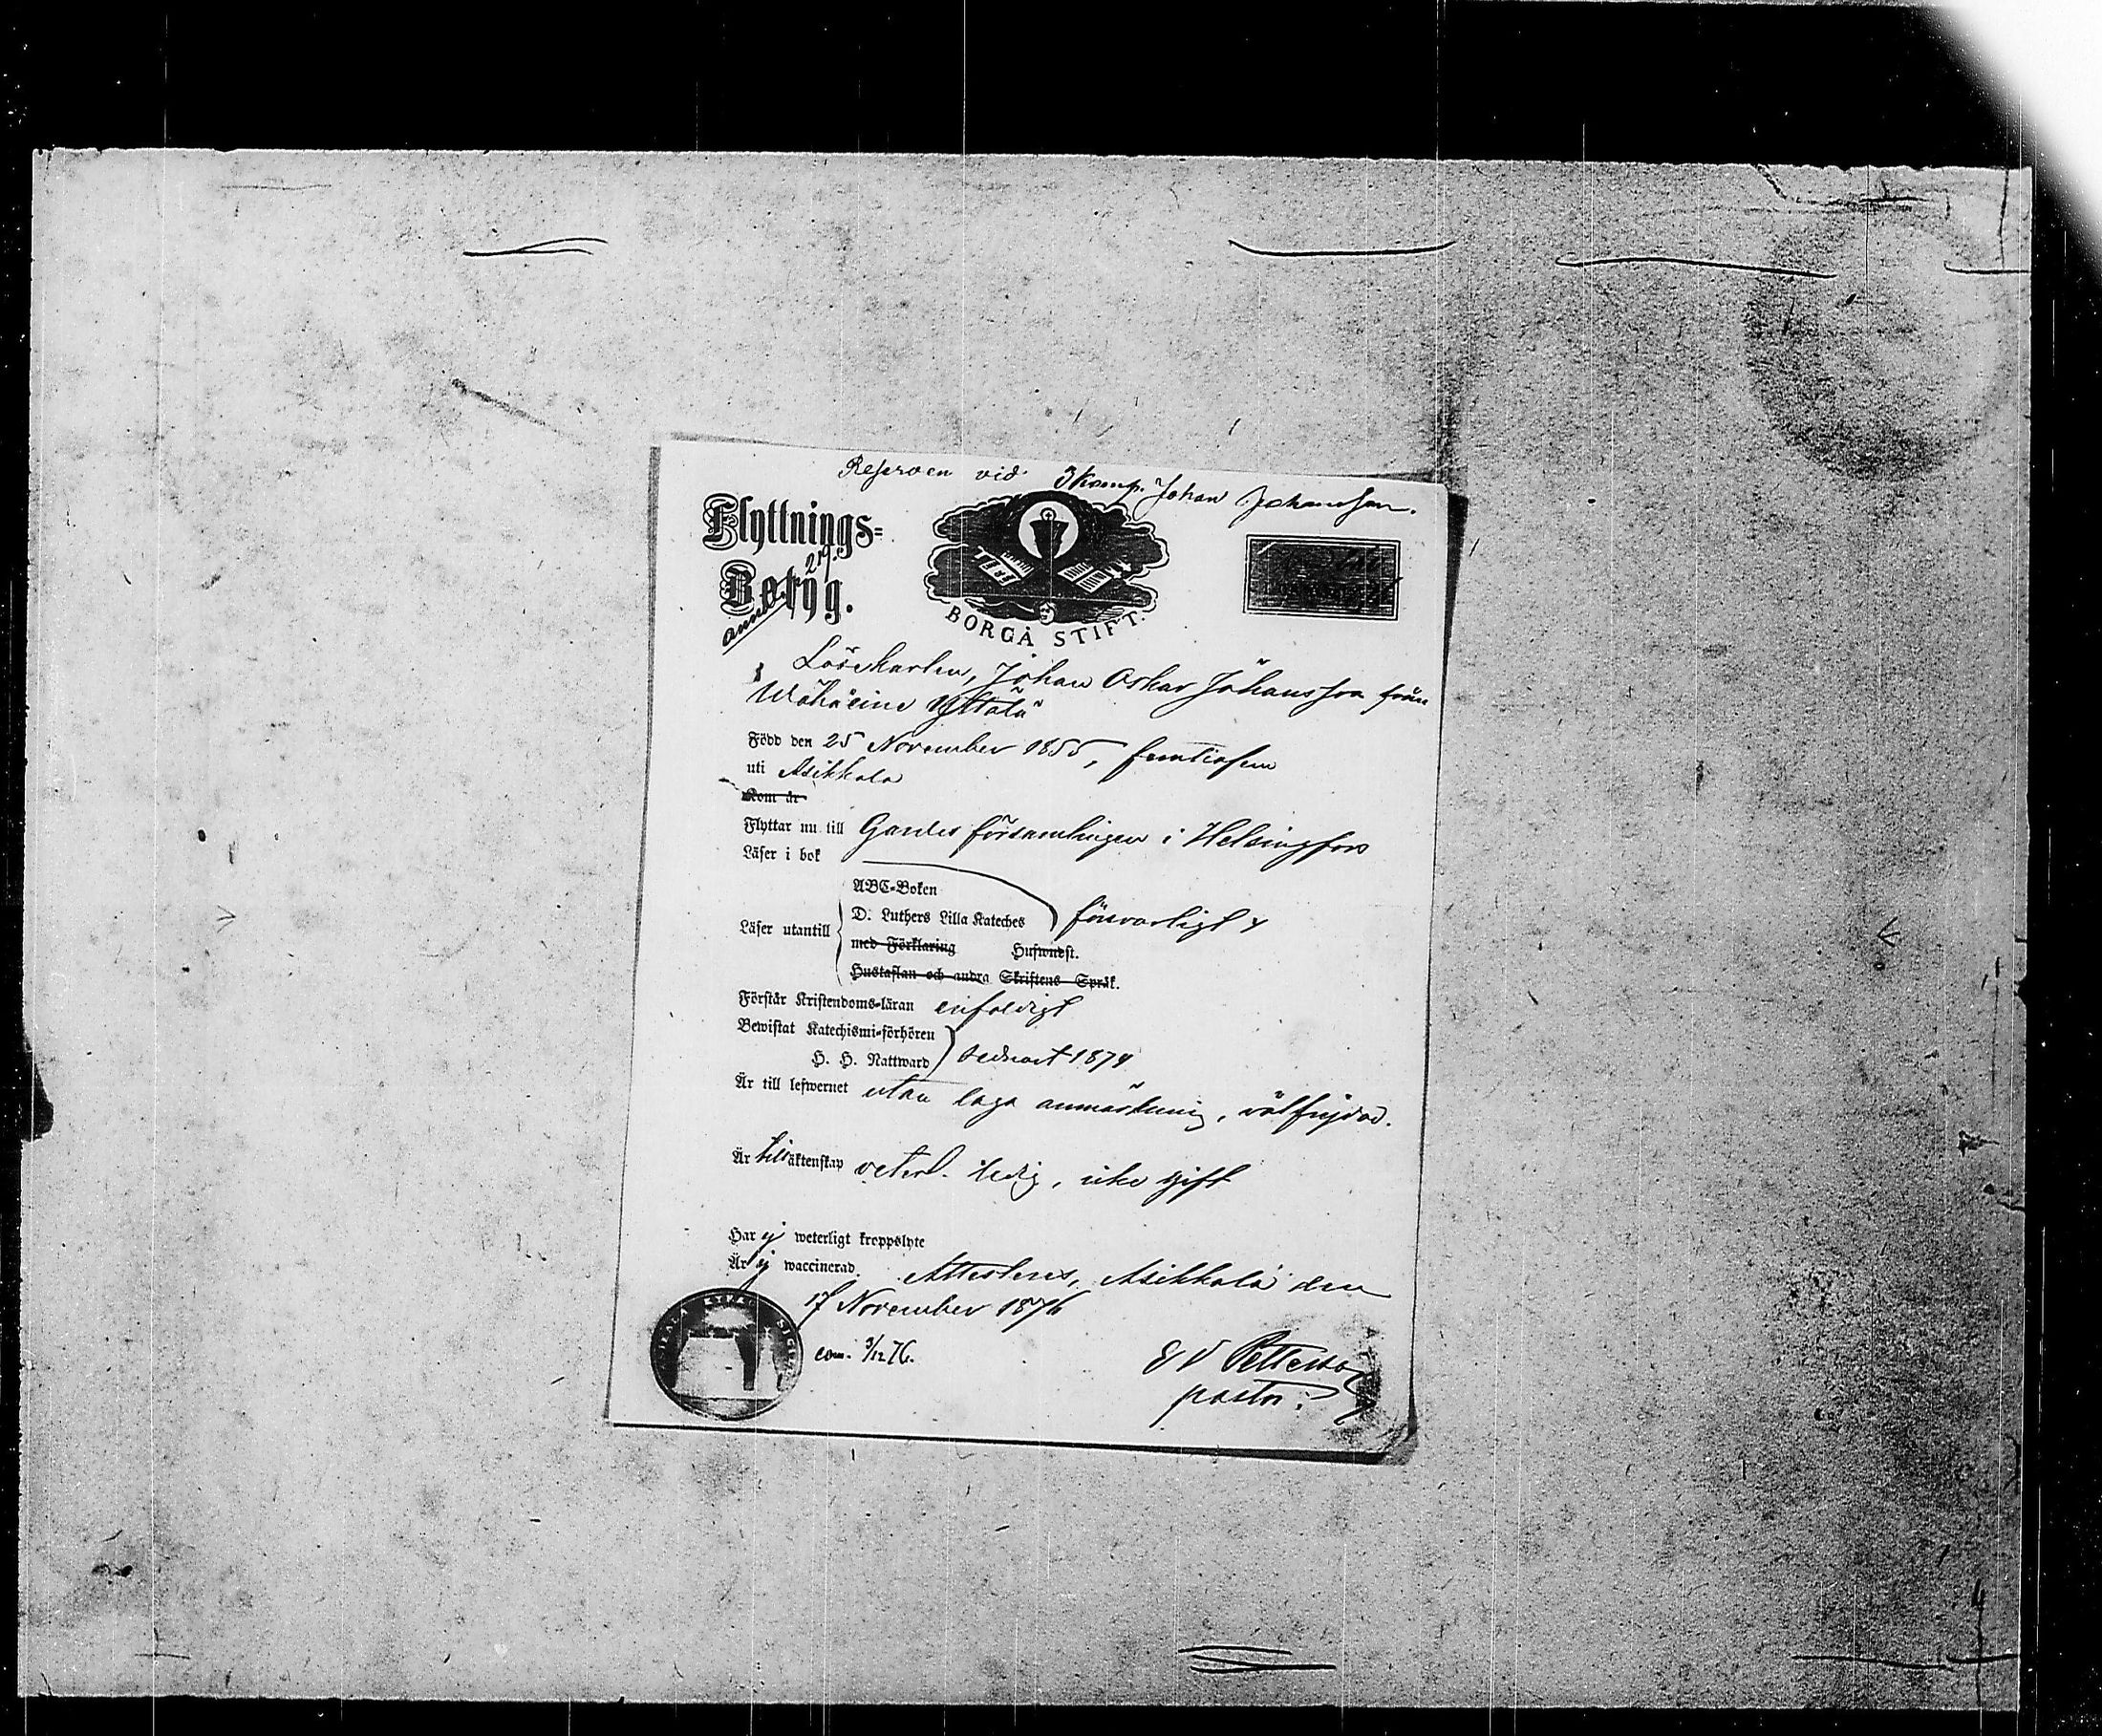 Reserven vid 3 Komp. Johan Johansson.
Flyttnings=
219.
Betyg.
BORGÅ STIFT.
Löskarlen, Johan Oskar Johansson från
Wähäeine Yltölä
Född den 25 November 1855, femtiofem
uti Asikkala
Kom år
Flyttar nu till Gardes församlingen i Helsingfors
Läser i bok
ABC-Boken
D. Luthers Lilla Kateches försvarligt
Läser utantill
med Förklaring
Hustaflan och andra Skriftens Språk.
Förstår Kristendoms-läran enfaldigt
Bewistat Katechismi-förhören
H. H. Nattward sednast 1874
Är till lefwernet utan laga anmärkning, välfrejdad.
Är till äktenskap veterl. ledig, icke gift
Har ej weterligt kroppslyte
Är ej waccinerad. Attesteras, Asikkala den
17 November 1876
com. 3/12 76.
E V Petterson
pastor.